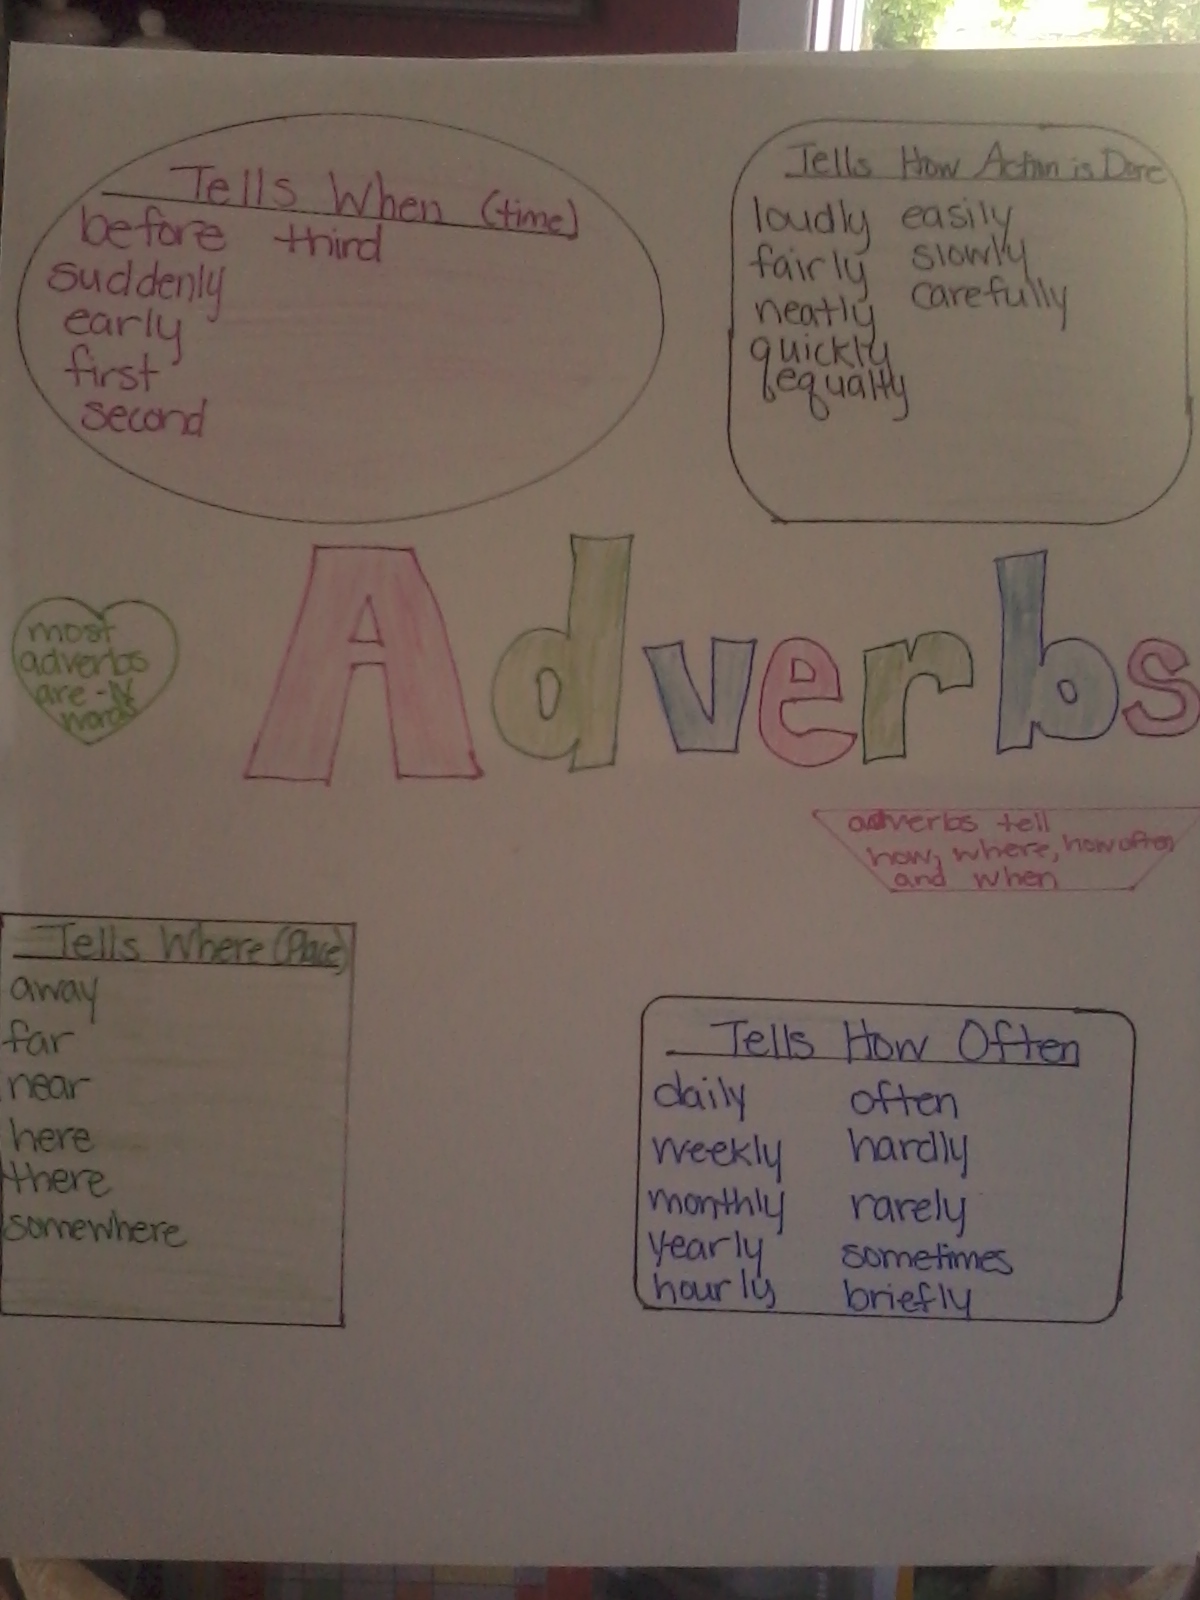 Tells When (time)
before third
suddenly
early
first
second
Tells How Action is Done
loudly easily
fairly slowly
neatly carefully
quickly
equally
most
adverbs
are -ly
words
Adverbs
adverbs tell
how, where, how often
and when
Tells Where (Place)
away
far
near
here
there
somewhere
Tells How Often
daily often
weekly hardly
monthly rarely
yearly sometimes
hourly briefly